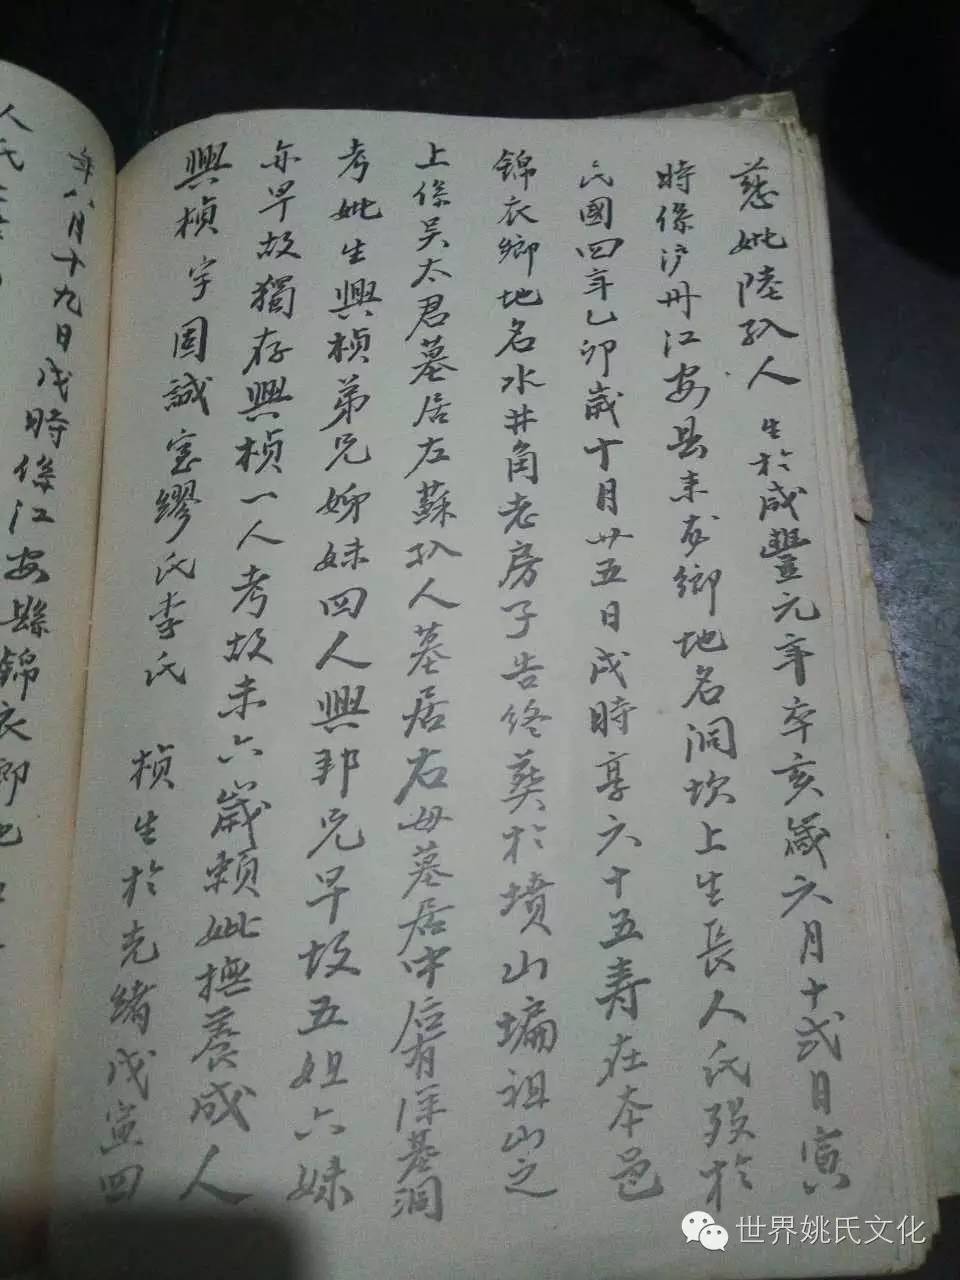 慈妣陸孺人 生於咸豐元年辛亥歲六月十弍日寅
時係沪州江安县耒家鄉地名洞坎上生長人氏殁於
民國四年乙卯歲十月廿五日戌時享六十五壽在本邑
錦衣鄉地名水井角老房子告终葵於墳山塆祖山之
上係吴太君墓居左蘇孺人墓居右母墓居中后有深基洞
考妣生興楨弟兄姊妹四人興邦兄早故五姐六妹
亦早故獨存興楨一人考故未六歲賴妣撫養成人
興楨字固誠室繆氏李氏 楨生於光緒戊寅四
年八月十九日戌時係江安縣錦衣鄉地
人氏
世界姚氏文化